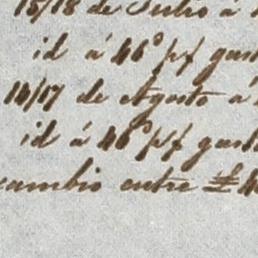 15/18 de Julio a
id á 46° p/ gas
14/17 de Agosto a
id á 46° p/ gas
cambio entre £ 4